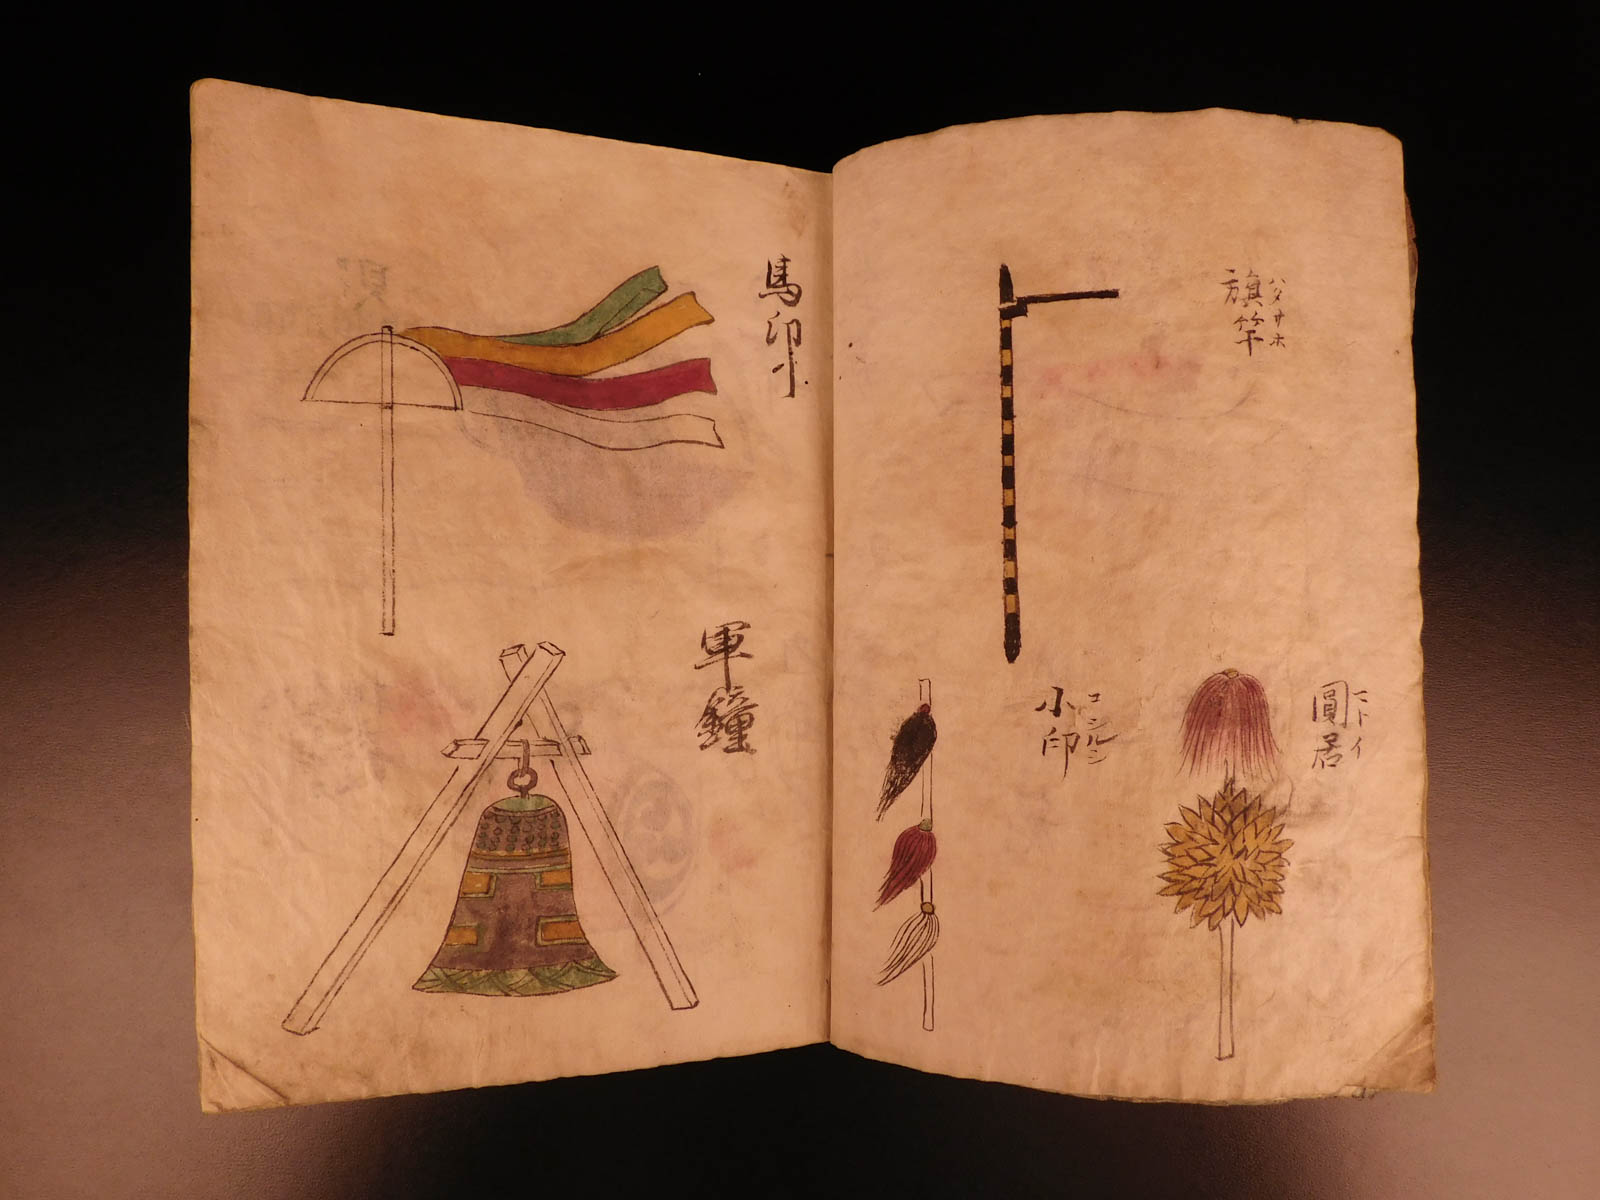 ハタサホ
旗竿
マトイ
圓居
コシルシ
小印
馬印小
軍鐘